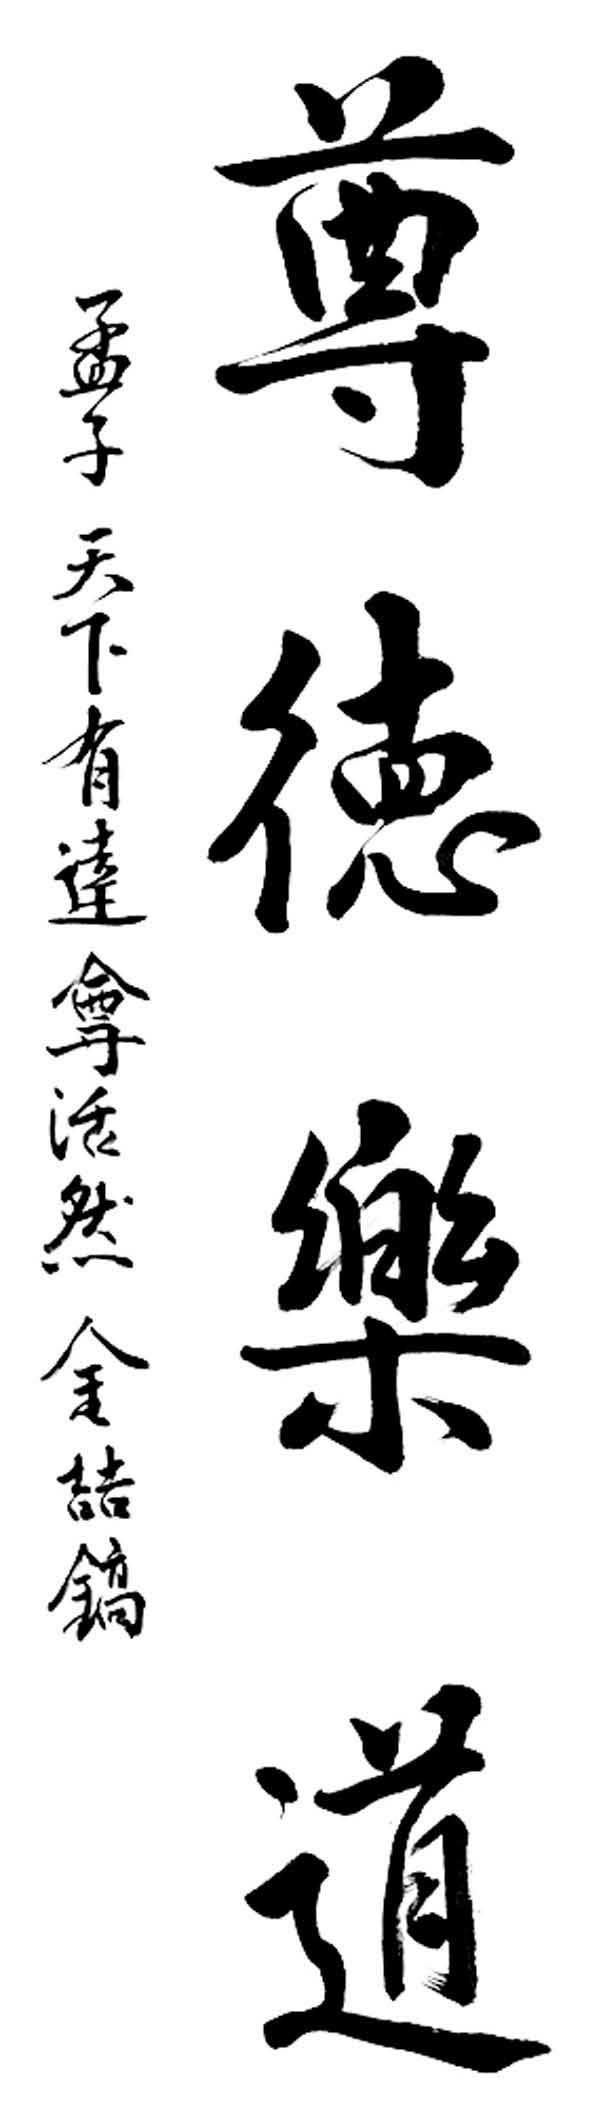 尊徳樂道
孟子 天下有達尊 活然 金喆鎬